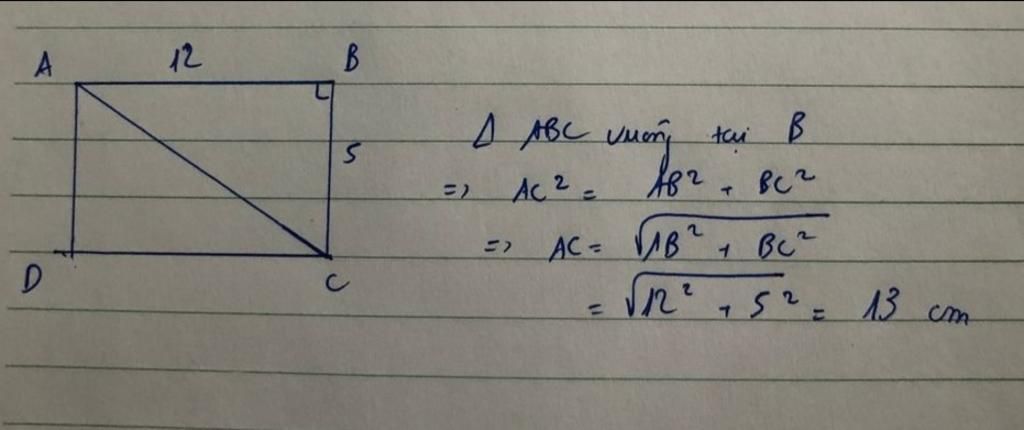 A 12 B
5
D C
Δ ABC vuông tại B
=> AC² = AB² + BC²
=> AC = √AB² + BC²
= √12² + 5² = 13 cm